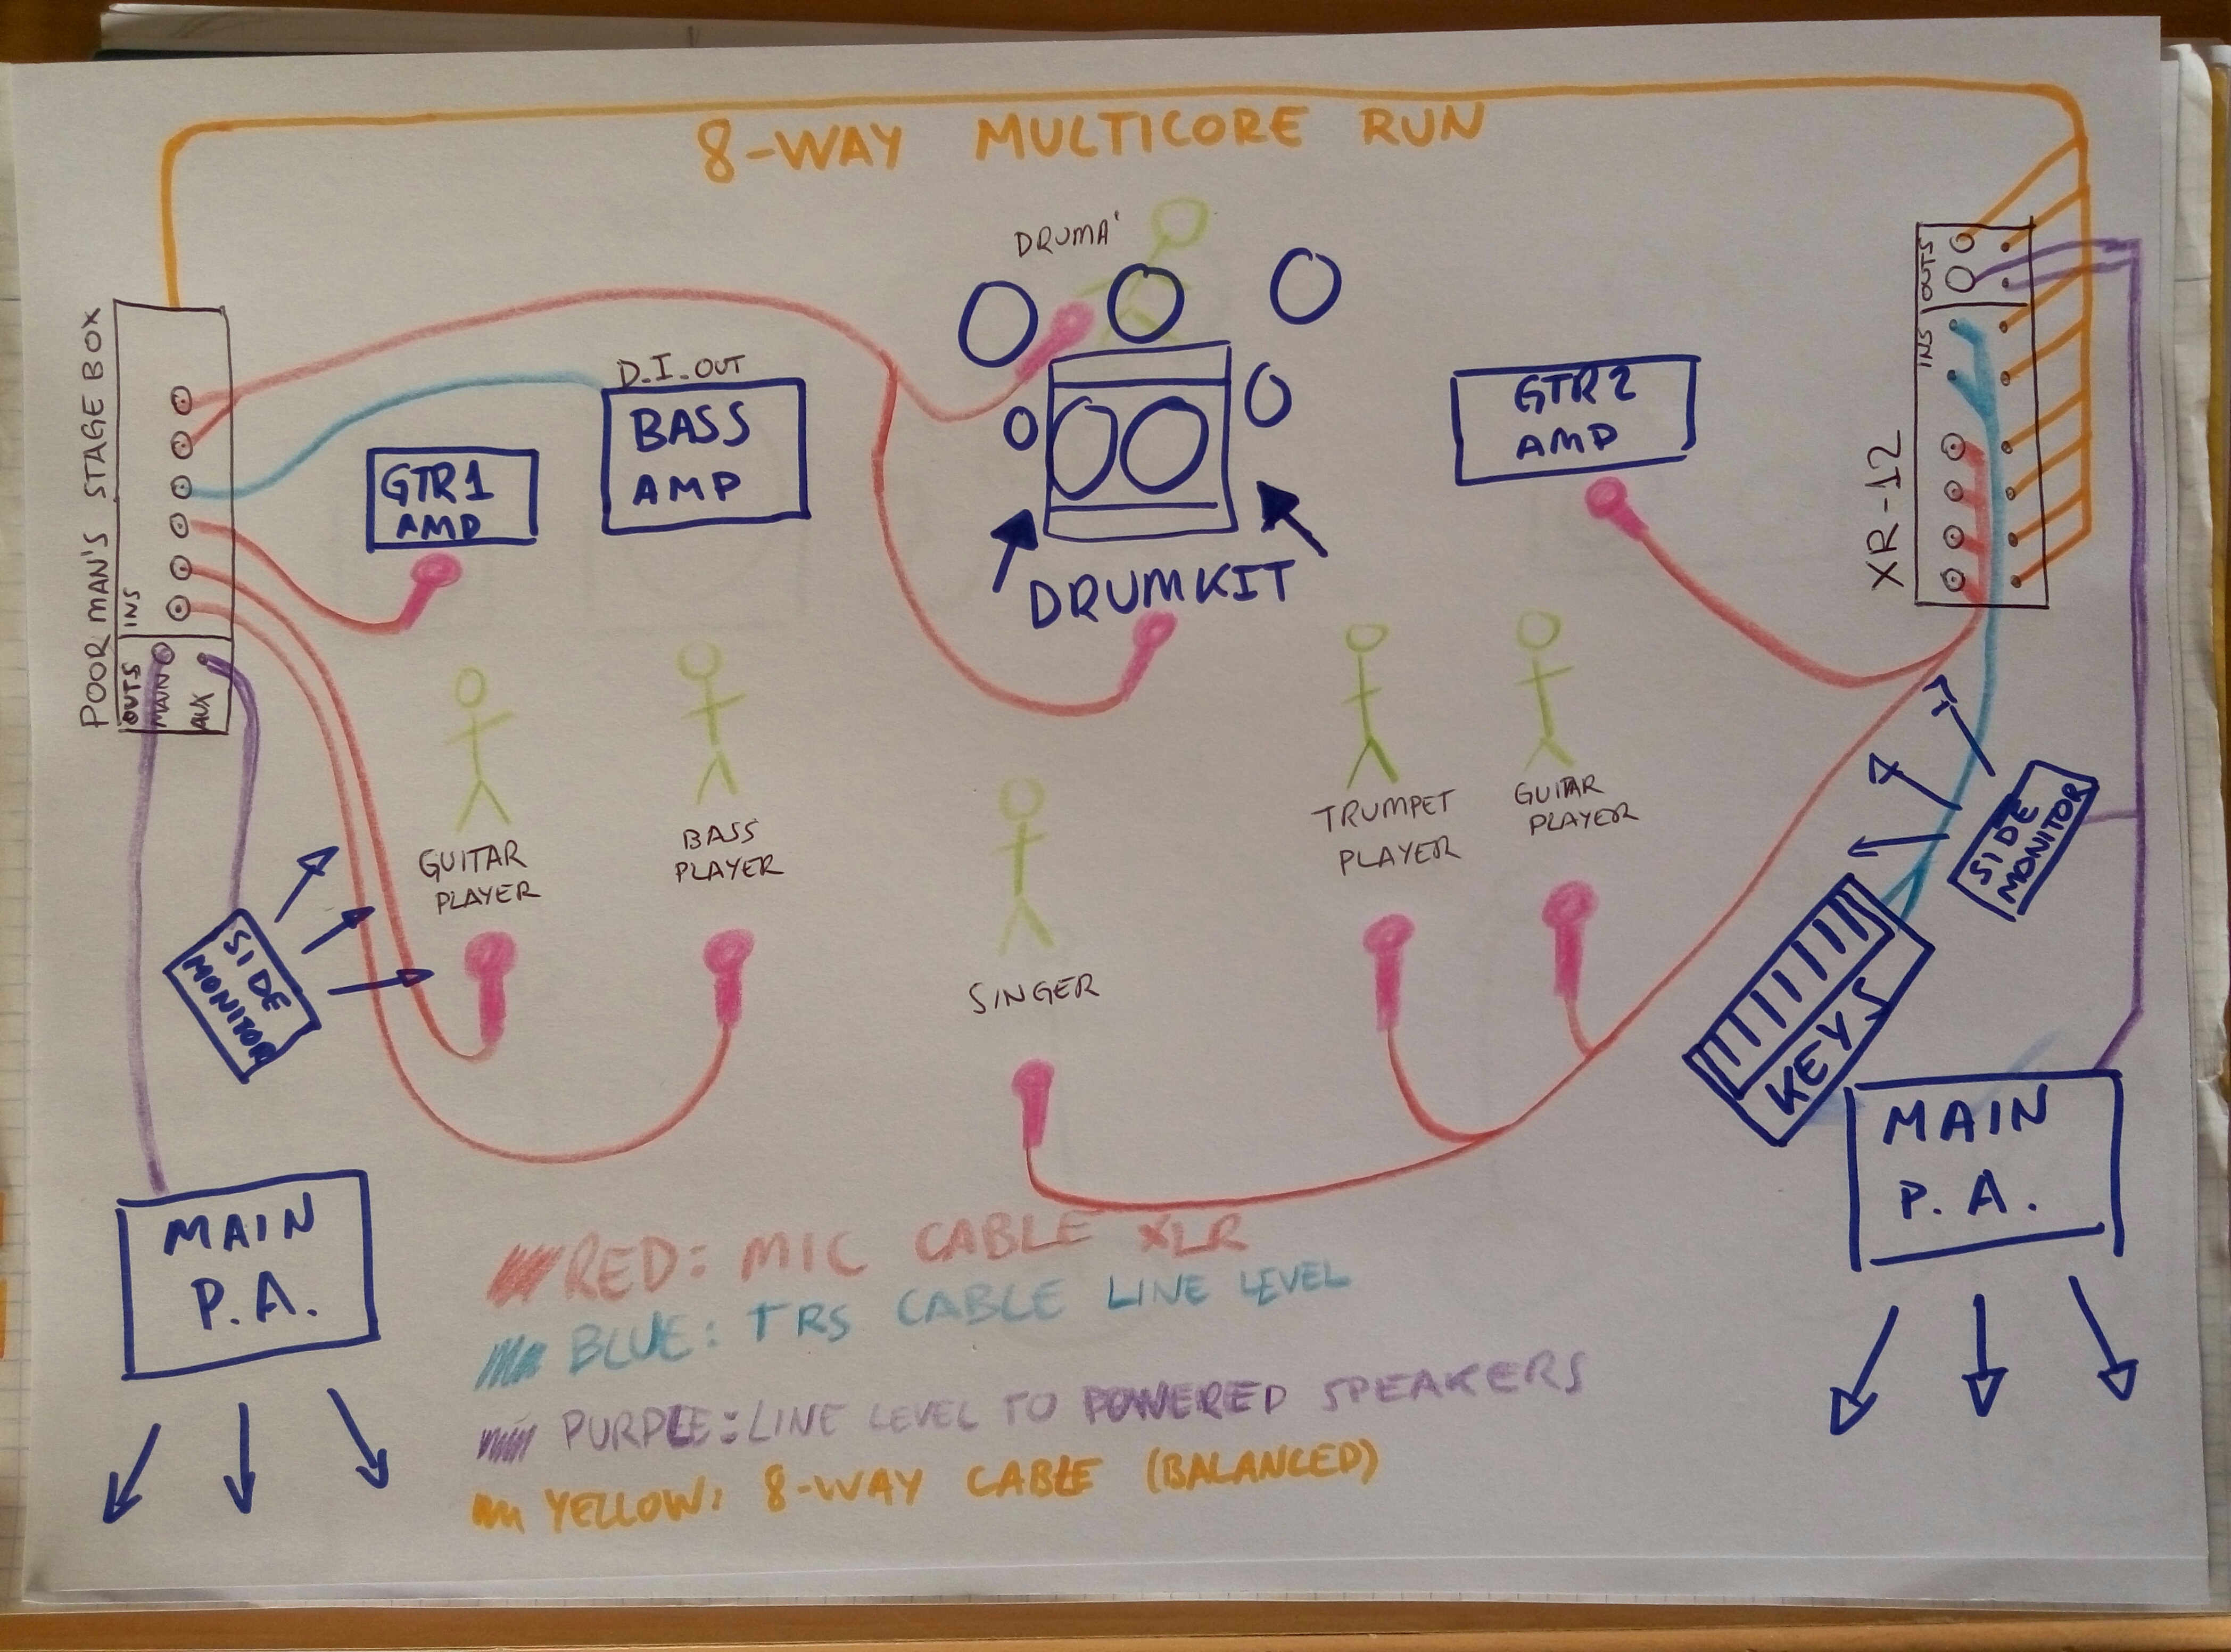 8-WAY MULTICORE RUN
DRUMA'
POOR MAN'S STAGE BOX
INS
OUTS
MAIN
AUX
D.I. OUT
BASS
AMP
GTR1
AMP
GTR2
AMP
DRUMKIT
XR-12
OUTS
INS
GUITAR
PLAYER
BASS
PLAYER
SINGER
TRUMPET
PLAYER
GUITAR
PLAYER
SIDE
MONITOR
SIDE
MONITOR
KEYS
MAIN
P.A.
MAIN
P.A.
RED: MIC CABLE XLR
BLUE: TRS CABLE LINE LEVEL
PURPLE: LINE LEVEL TO POWERED SPEAKERS
YELLOW: 8-WAY CABLE (BALANCED)